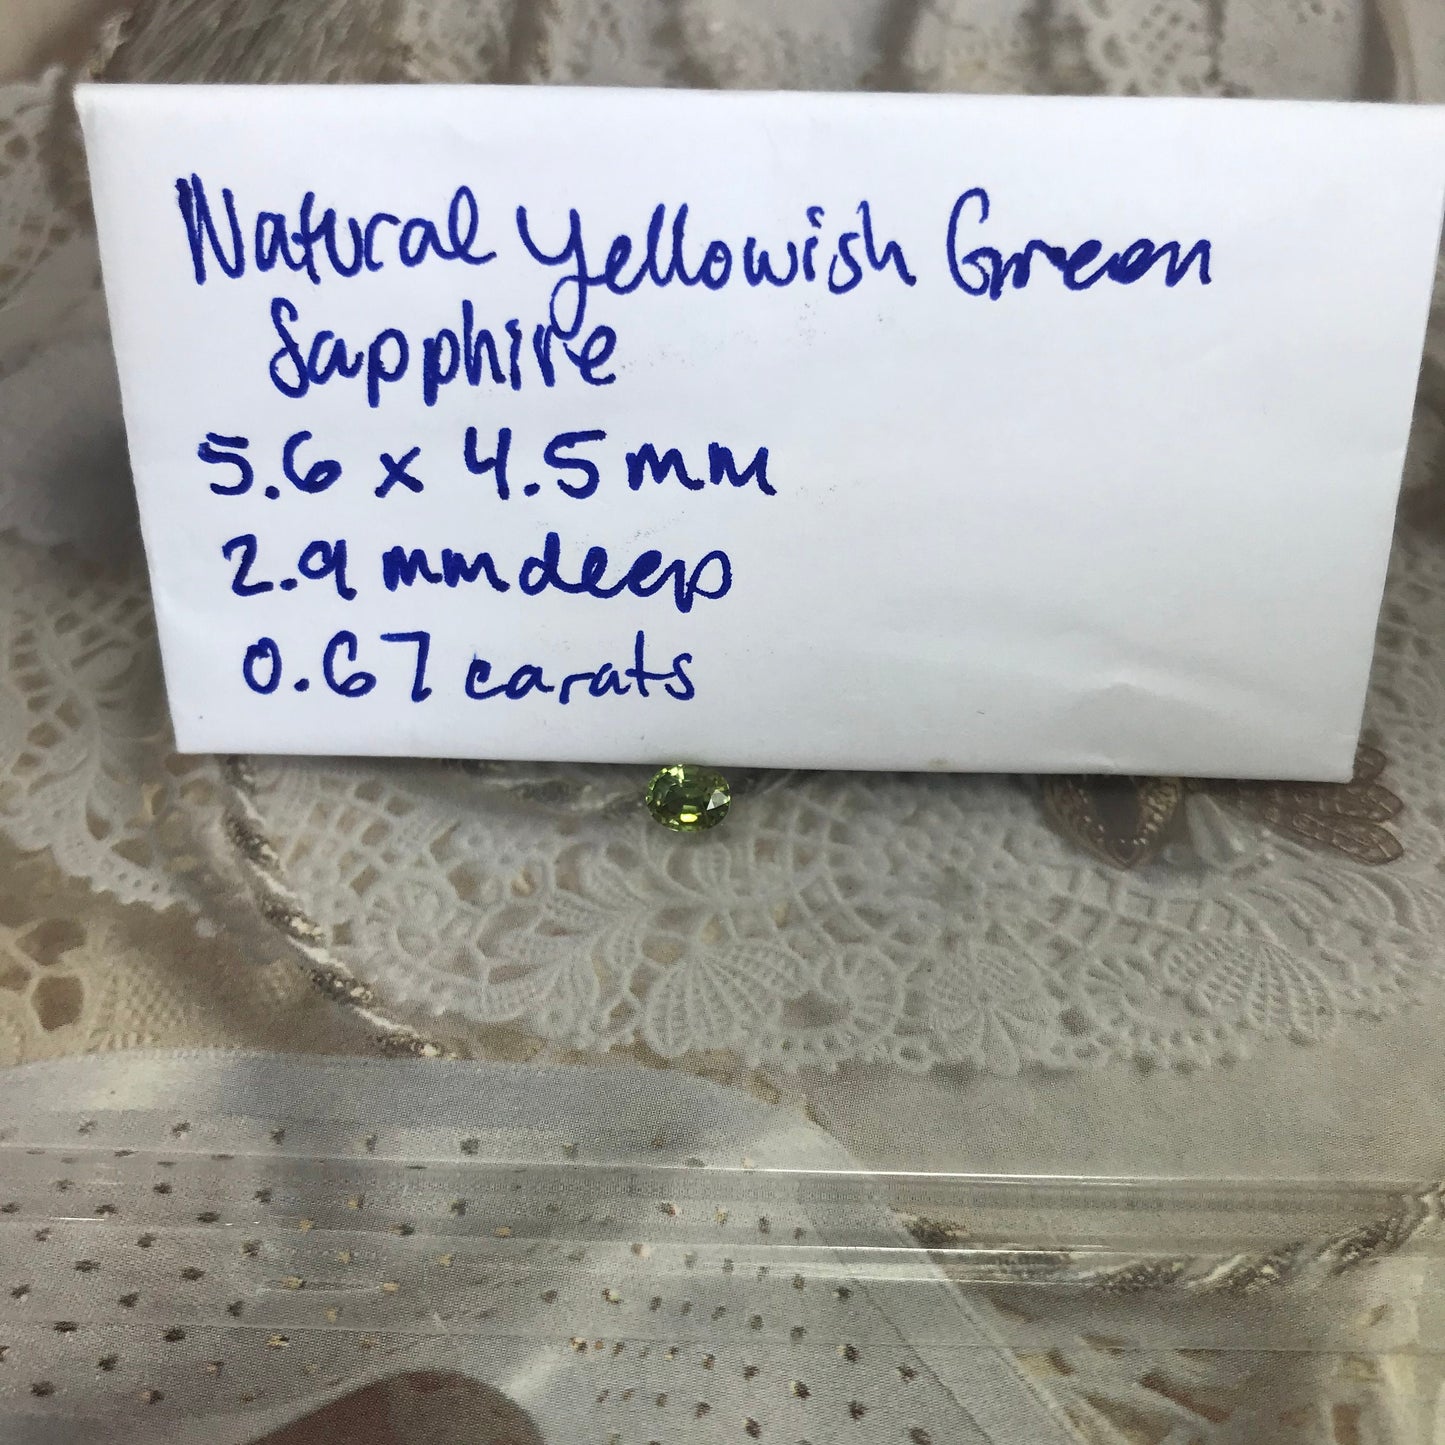 Natural Yellowish Green
Sapphire
5.6 x 4.5mm
2.9 mm deep
0.67 carats